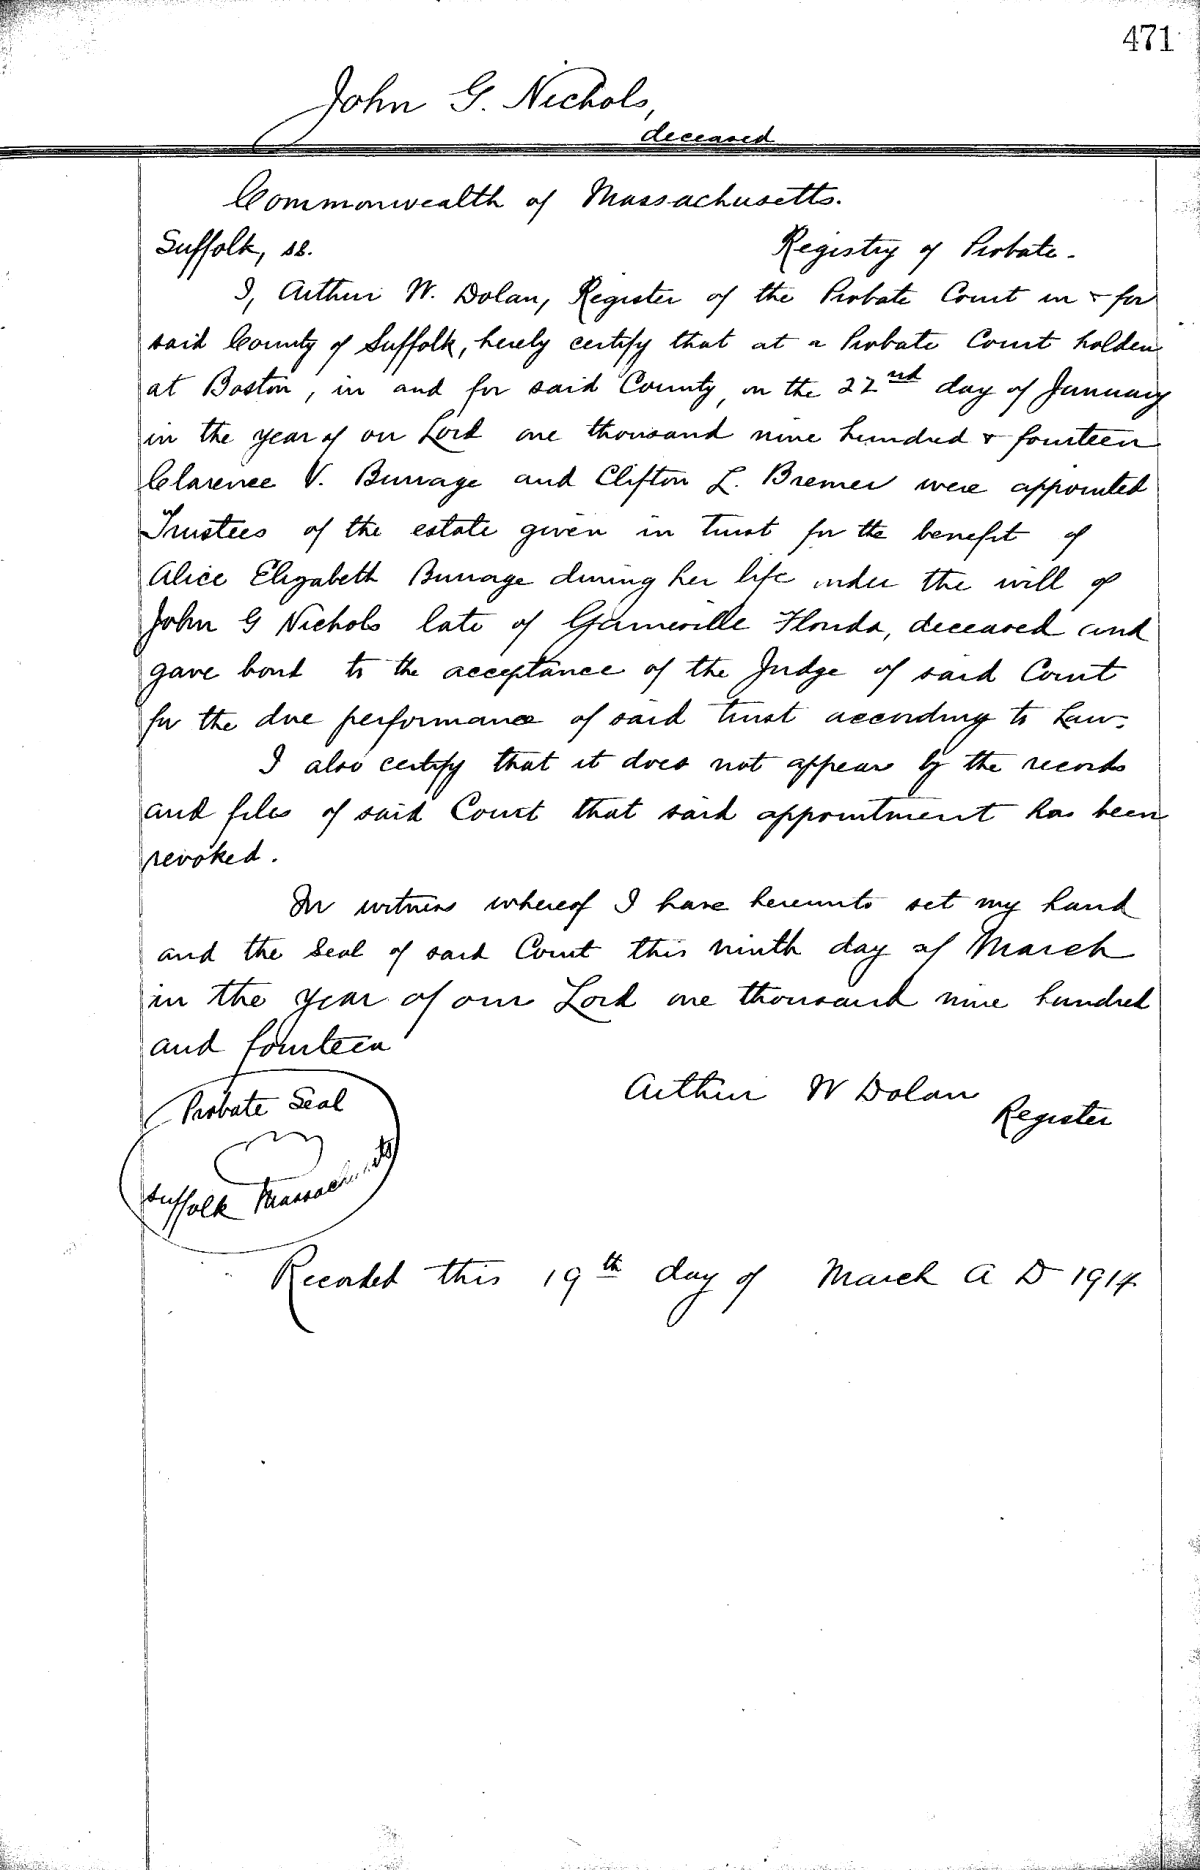 471
John G. Nichols,
deceased
Commonwealth of Massachusetts.
Suffolk, ss. Registry of Probate.
I, Arthur W. Dolan, Register of the Probate Court in & for
said County of Suffolk, hereby certify that at a Probate Court holden
at Boston, in and for said County, on the 22nd day of January
in the year of our Lord one thousand nine hundred & fourteen
Clarence V. Burrage and Clifton L. Bremer were appointed
Trustees of the estate given in trust for the benefit of
Alice Elizabeth Burrage during her life under the will of
John G Nichols late of Gainesville Florida, deceased and
gave bond to the acceptance of the Judge of said Court
for the due performance of said trust according to Law.
I also certify that it does not appear by the records
and files of said Court that said appointment has been
revoked.
In witness whereof I have hereunto set my hand
and the Seal of said Court this ninth day of March
in the year of our Lord one thousand nine hundred
and fourteen
Arthur W Dolan
Register
Probate Seal
Suffolk Massachusetts
Recorded this 19th day of March A D 1914